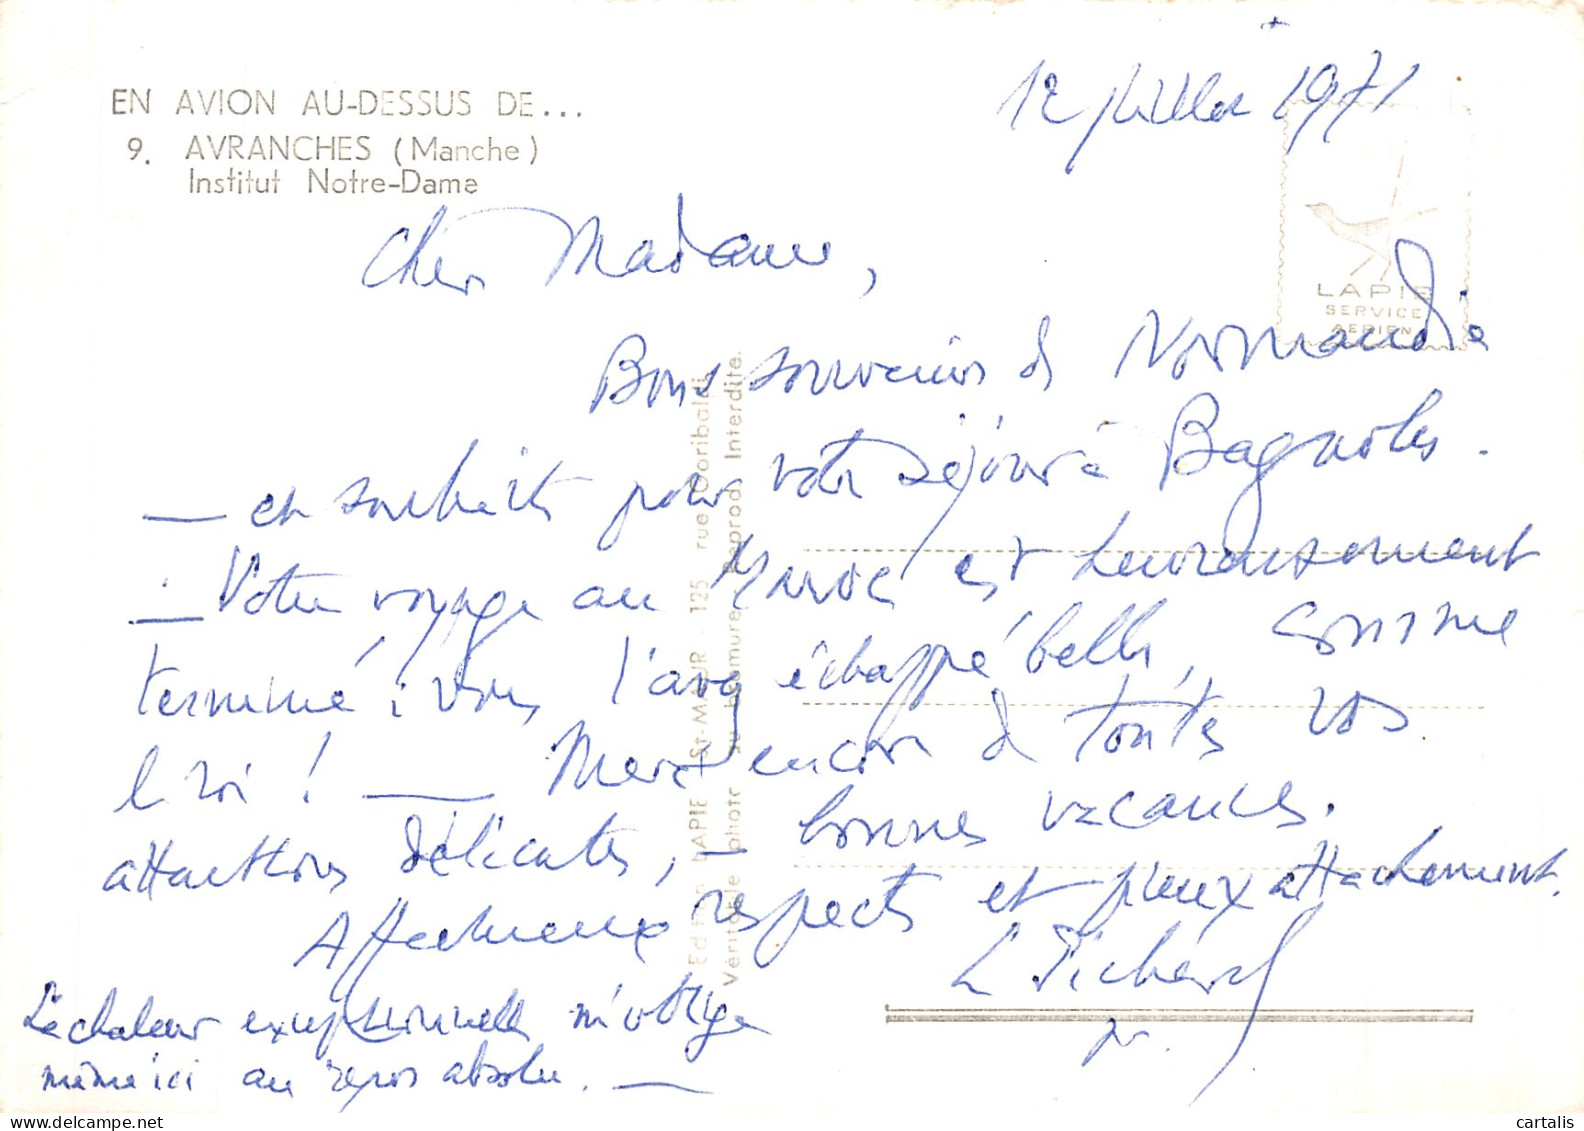 EN AVION AU-DESSUS DE...
9. AVRANCHES (Manche)
Institut Notre-Dame
12 juillet 1971
LAPIE
SERVICE
AERIEN
Chère Madame,
Bons souvenirs de Normandie
— et souhaits pour votre séjour à Bagnoles.
— Votre voyage au Maroc est heureusement
terminé : vous l'avez échappé belle, comme
le roi ! — Merci encore de toutes vos
attentions délicates, — bonnes vacances.
Affectueux respects et pieux attachement.
L Pichard
pr.
La chaleur exceptionnelle m'oblige
même ici au repos absolu. —
Edition LAPIE St-MAUR - 125 rue Garibaldi
Véritable photo au bromure. Reprod. Interdite.
cartalis